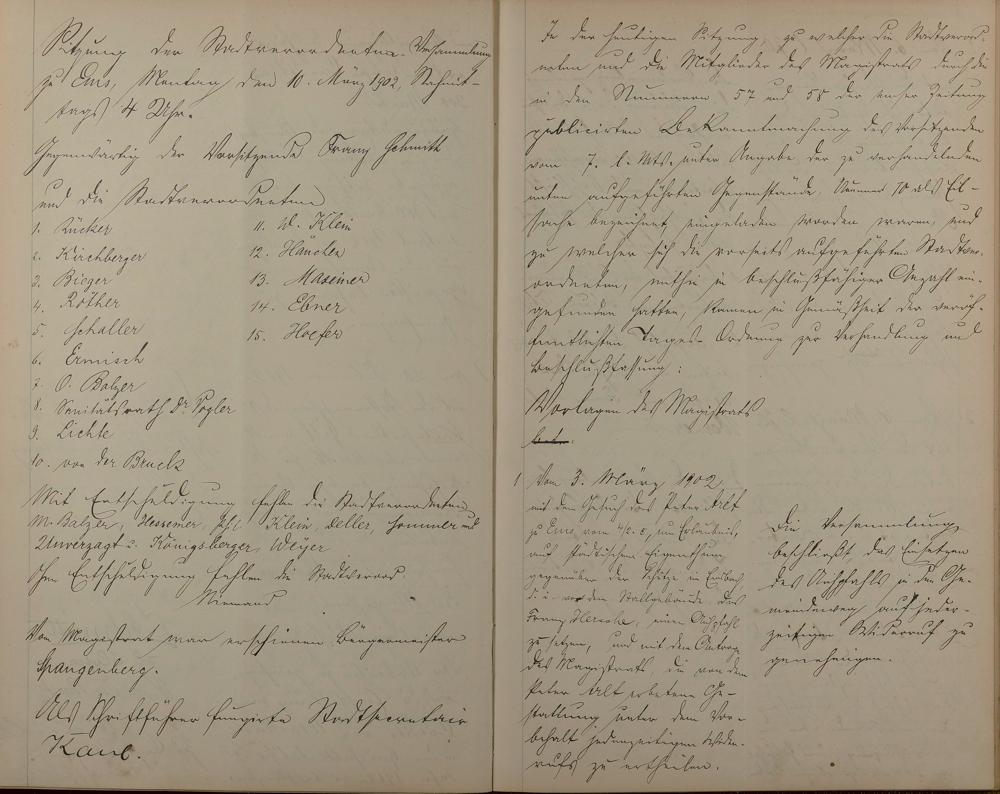 Sitzung der Stadtverordneten-Versammlung
zu Ems, Montag den 10. März 1902, Nachmit-
tags 4 Uhr.
Gegenwärtig der Vorsitzende Franz Schmitt
und die Stadtverordneten
1. Rücker
2. Kirchberger
3. Bieger
4. Röther
5. Schaller
6. Ermisch
7. O. Balzer
8. Sanitätsrath Dr Vogler
9. Lichte
10. von der Bruck
11. W. Klein
12. Hänchen
13. Massiner
14. Ebner
15. Hoefer
Mit Entschuldigung fehlen die Stadtverordneten
M. Balzer, Hessemer, Klein, Heller, Sommer und
Unverzagt, Königsberger, Weyer
Ohne Entschuldigung fehlen die Stadtverord.
Niemand
Vom Magistrat war erschienen Bürgermeister
Spangenberg.
Als Schriftführer fungirte Stadtsecretair
Kaul.
In der heutigen Sitzung, zu welcher die Stadtverord-
neten und die Mitglieder des Magistrats durch die
in den Nummern 57 und 58 der Emser Zeitung
publicirten Bekanntmachung des Vorsitzenden
vom 7. l. Mts. unter Angabe der zu verhandelnden
unten aufgeführten Gegenstände, Nummer 10 als Eil-
sache bezeichnet, eingeladen worden waren, und
zu welcher sich die vorseits aufgeführten Stadtver-
ordneten, mithin in beschlußfähiger Anzahl ein-
gefunden hatten, kamen in Gemäßheit der veröf-
fentlichten Tages-Ordnung zur Verhandlung und
Beschlußfassung:
Vorlagen des Magistrats
1 Vom 3. März 1902
mit dem Gesuch des Peter Alt
zu Ems, vom um Erlaubniß,
auf städtischem Eigenthum
gegenüber der
vor dem Stallgebäude des
Franz einen
zu setzen, und mit dem Antrag
des Magistrats die von dem
Peter Alt erbetene Ge-
stattung unter dem Vor-
behalt jederzeitigen Wider-
rufs zu ertheilen.
Die Versammlung
beschließt das Einsetzen
des in den Ge-
meindeweg auf jeder-
zeitigen Widerruf zu
genehmigen.